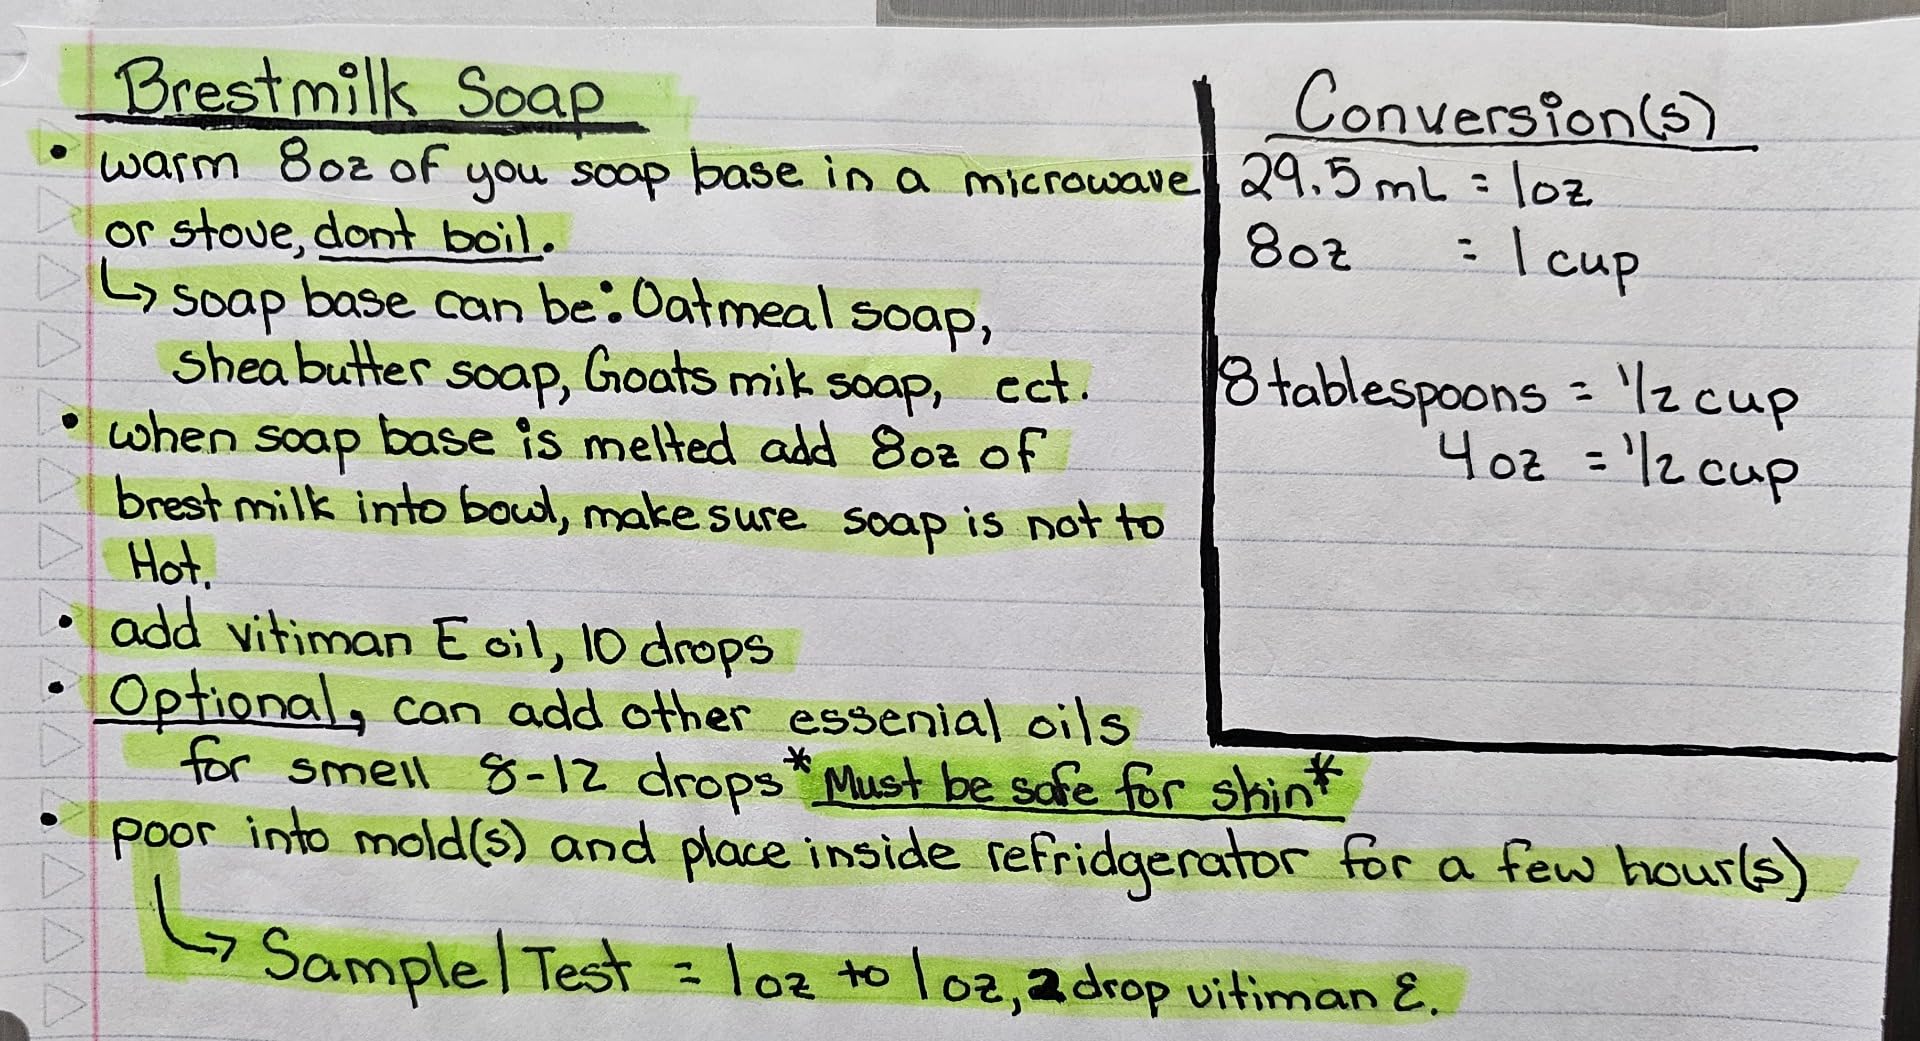 Brestmilk Soap
• warm 8oz of you soap base in a microwave
or stove, dont boil.
↳ soap base can be: Oatmeal soap,
shea butter soap, Goats mik soap, ect.
• when soap base is melted add 8oz of
brest milk into bowl, make sure soap is not to
Hot.
• add vitiman E oil, 10 drops
• Optional, can add other essenial oils
for smell 8-12 drops *Must be safe for skin*
• poor into mold(s) and place inside refridgerator for a few hour(s)
↳ Sample/Test = 1oz to 1oz, 2 drop vitiman E.
Conversion(s)
29.5 mL = 1oz
8oz = 1 cup
8 tablespoons = 1/2 cup
4 oz = 1/2 cup